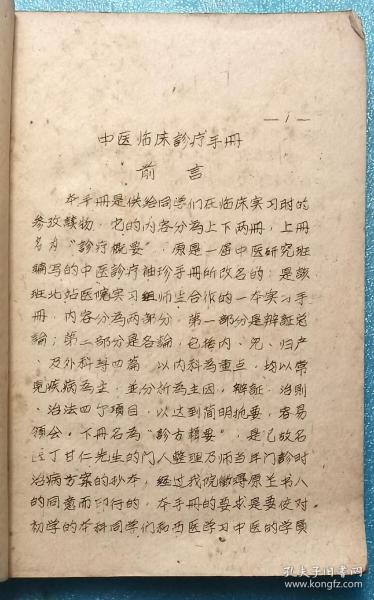 —1—
中医临床診疗手冊
前言
本手冊是供给同学们在临床实习时的
参攷讀物，它的内容分为上下两冊，上冊
名为“診疗概要”，原是一届中医研究班
编写的中医診疗袖珍手冊所改名的；是該
班北站医院实习组师生合作的一本实习手
冊，内容分为两部分，第一部分是辩証总
論；第二部分是各論，包括内、児、妇产
、及外科等四篇，以内科为重点，均以常
見疾病为主，並分析为主因，辩証、治則
、治法四丁項目，以达到简明抓要，容易
領会，下冊名为“診方輯要”，是已故名
医丁甘仁先生的门人整理乃师当年门診时
治病方案的抄本，经过我院徵得原主书人
的同意而印行的，本手冊的要求是要使对
初学的本科同学们和西医学习中医的学员
孔夫子旧书网
kongfz.com